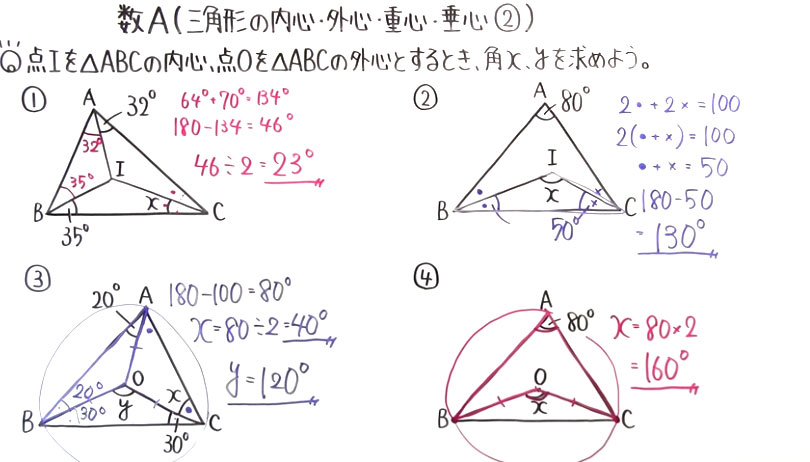 数A(三角形の内心・外心・重心・垂心②)
Q 点Iを△ABCの内心、点Oを△ABCの外心とするとき、角x、yを求めよう。
①
A
32°
32°
I
35°
x
B
C
35°
64°+70°=134°
180-134=46°
46÷2=23°
②
A
80°
I
x
B
C
50°
2・+2×=100
2(・+×)=100
・+×=50
180-50
=130°
③
20°
A
O
20°
30°
y
x
B
C
30°
180-100=80°
x=80÷2=40°
y=120°
④
A
80°
O
x
B
C
x=80×2
=160°